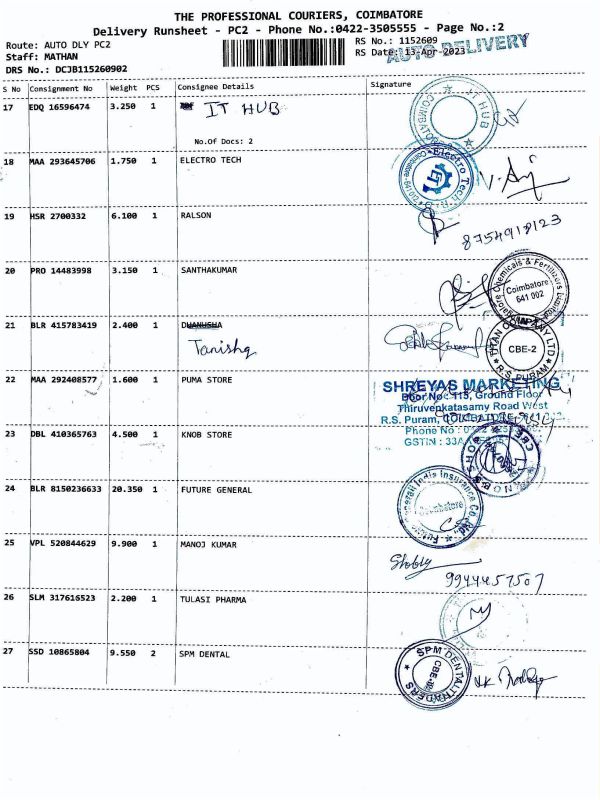 THE PROFESSIONAL COURIERS, COIMBATORE
Delivery Runsheet - PC2 - Phone No.:0422-3505555 - Page No.:2
Route: AUTO DLY PC2
RS No.: 1152609
Staff: MATHAN
RS Date: 13-Apr-2023
AUTO DELIVERY
DRS No.: DCJB115260902
S No Consignment No Weight PCS Consignee Details Signature
17 EDQ 16596474 3.250 1 IT HUB
No.Of Docs: 2
IT HUB COIMBATORE
18 MAA 293645706 1.750 1 ELECTRO TECH
Electro Tech
19 HSR 2700332 6.100 1 RALSON
8754918123
20 PRO 14483998 3.150 1 SANTHAKUMAR
Chemicals & Fertilizers
Coimbatore
641 002
21 BLR 415783419 2.400 1 DHANUSHA
Tanishq
CBE-2
R.S. PURAM
22 MAA 292408577 1.600 1 PUMA STORE
SHREYAS MARKETING
Door No: 115, Ground Floor
Thiruvenkatasamy Road West
R.S. Puram, COIMBATORE
Phone No
GSTIN : 33AA
23 DBL 410365763 4.500 1 KNOB STORE
CBE
24 BLR 8150236633 20.350 1 FUTURE GENERAL
India Insurance Co. Ltd.
Coimbatore
25 VPL 520844629 9.900 1 MANOJ KUMAR
9944457507
26 SLM 317616523 2.200 1 TULASI PHARMA
27 SSD 10865804 9.550 2 SPM DENTAL
SPM DENTAL TRADERS